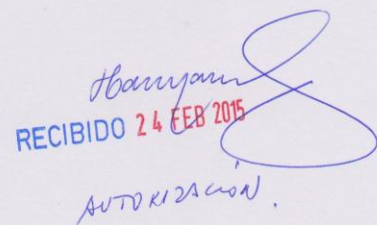 RECIBIDO 24 FEB 2015
AUTORIZACIÓN.